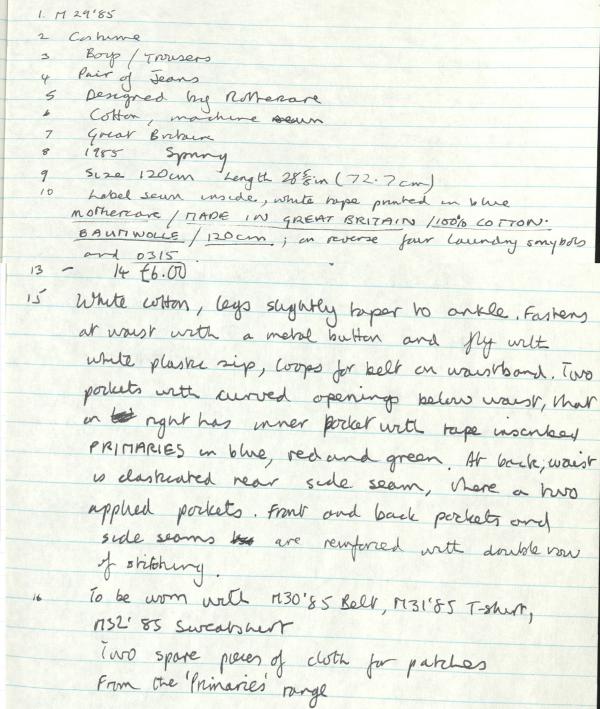 1. M 29'85
2 Costume
3 Boys / Trousers
4 Pair of Jeans
5 Designed by Mothercare
6 Cotton, machine sewn
7 Great Britain
8 1985 Spring
9 Size 120cm Length 28 5/8 in (72.7cm)
10 Label sewn inside, white tape printed in blue
mothercare / MADE IN GREAT BRITAIN / 100% COTTON.
BAUMWOLLE / 120cm ; on reverse four laundry symbols
and 0315.
13 – 14 £6.00
15 White cotton, legs slightly taper to ankle. Fastens
at waist with a metal button and fly with
white plastic zip, loops for belt on waistband. Two
pockets with curved openings below waist, that
on right has inner pocket with tape inscribed
PRIMARIES in blue, red and green. At back, waist
is elasticated near side seam, there a two
applied pockets. Front and back pockets and
side seams are reinforced with double row
of stitching.
16 To be worn with M30'85 Belt, M31'85 T-shirt,
M32'85 Sweatshirt
Two spare pieces of cloth for patches
From the 'Primaries' range